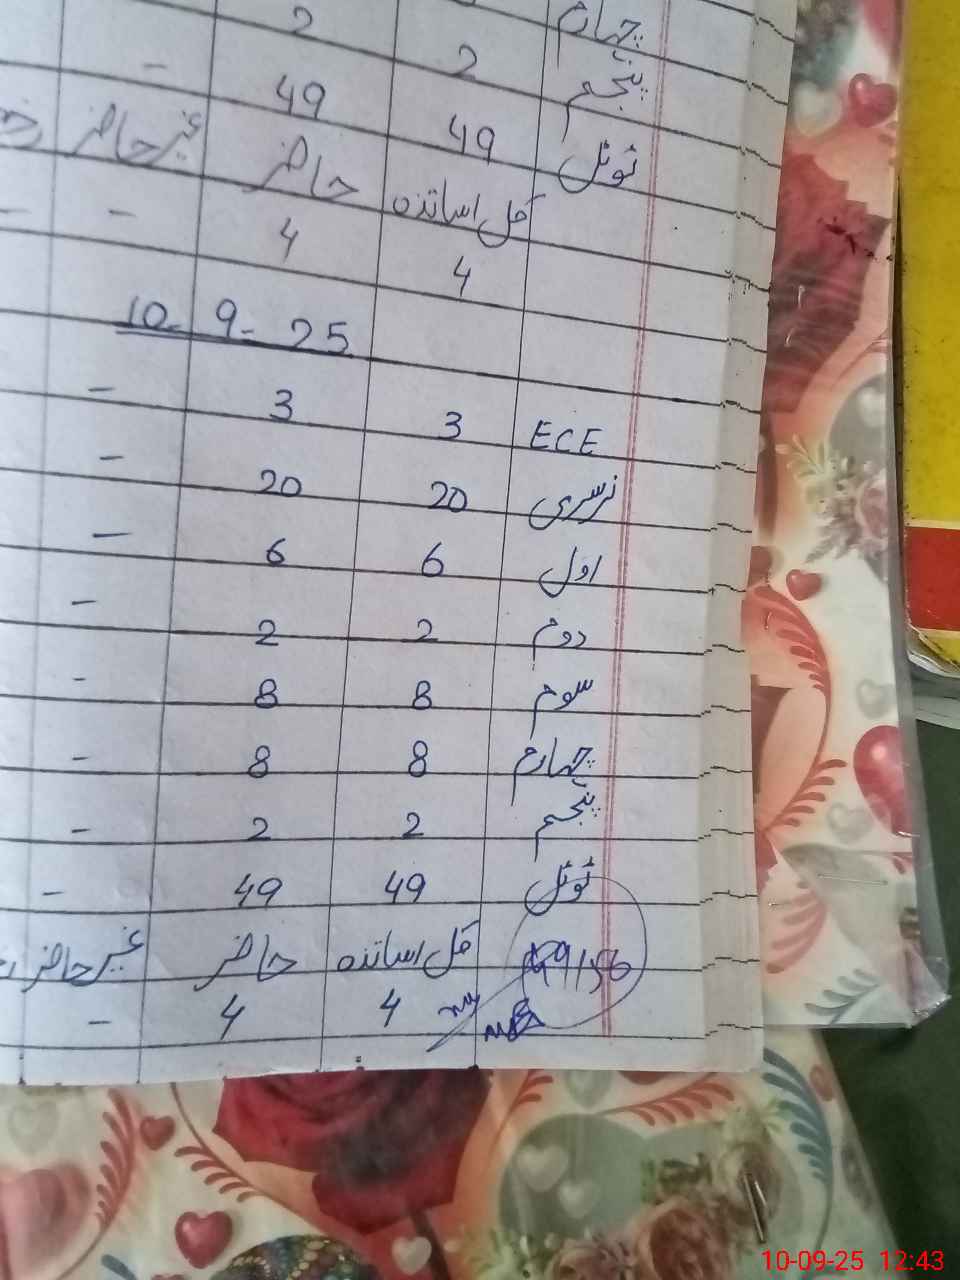 چہارم 2 2
پنجم 49 -
ٹوٹل 49
غیر حاضر حاضر کل اساتذہ
4 4 - -
10-9-25
ECE 3 3 -
نرسری 20 20 -
اول 6 6 -
دوم 2 2 -
سوم 8 8 -
چہارم 8 8 -
پنجم 2 2 -
ٹوٹل 49 49 -
کل اساتذہ حاضر غیر حاضر
4 4 -
49156
10-09-25 12:43